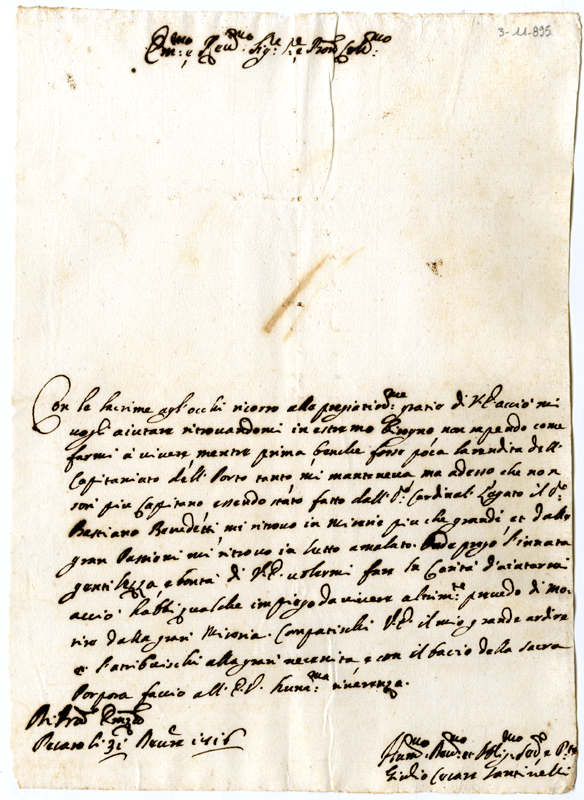 3-11-895
Em:mo e Reud:mo Sig:re
Con le lacrime agl'occhi ricorro alla gratia di V.E. acciò mi
vogli aiutare ritrovandomi in estremo Bisogno non sapendo come
farmi a vivere, mentre prima benche fosse poca la rendita dell'
Capitaniato dell' Porto tanto mi manteneva, ma adesso che non
son più Capitano essendo stato fatto dall' Cardinal Legato il
Bastiano Benedetti, mi ritrovo in Miserie più che grandi et dalla
gran Passioni mi ritrovo in letto amalato. prego l'innata
gentilezza, e bontà di V.E. volermi fare la Carità d'aiutarmi
acciò habbi qualche impiego da vivere altrim:te
dalla gran Miseria. Compatischi V.E. il mio grande ardire
et l'atribuischi alla gran necessità, e con il bacio della sacra
Porpora faccio all' E.V. hum:ma riverenza.
Di V.ra Em:za
Pesaro li
Hum:mo Deu:mo et Obblig:mo
Giulio Cesare Santinelli